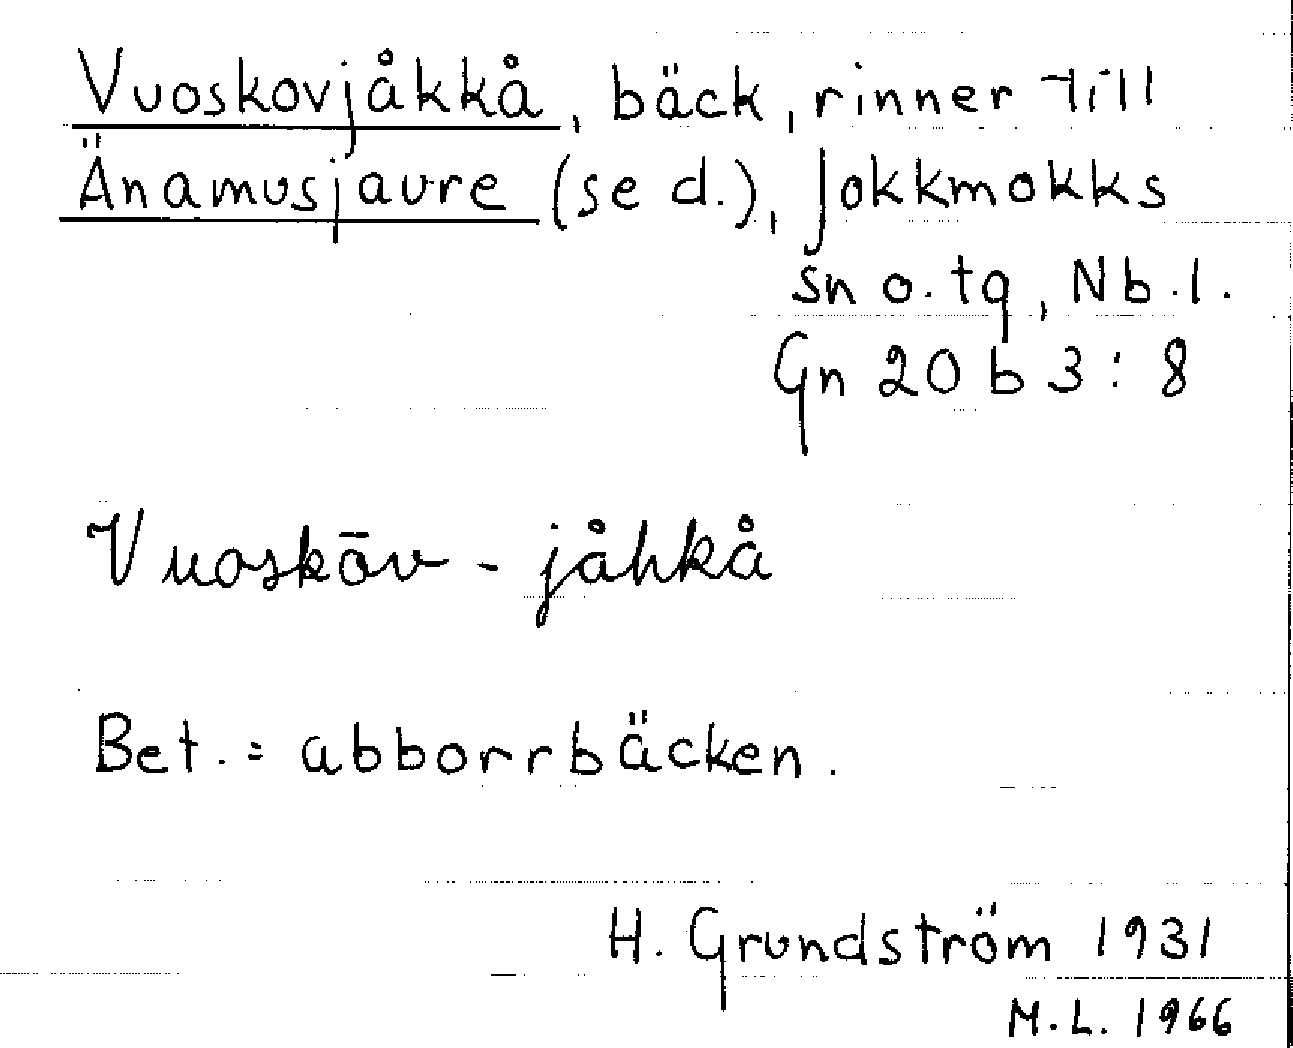 Vuoskovjåkkå, bäck, rinner till
Änamusjaure (se d.), Jokkmokks
sn o. tg, Nb. l.
Gn 20 b 3 : 8
Vuoskōv - jåhkå
Bet. = abborrbäcken.
H. Grundström 1931
M.L. 1966